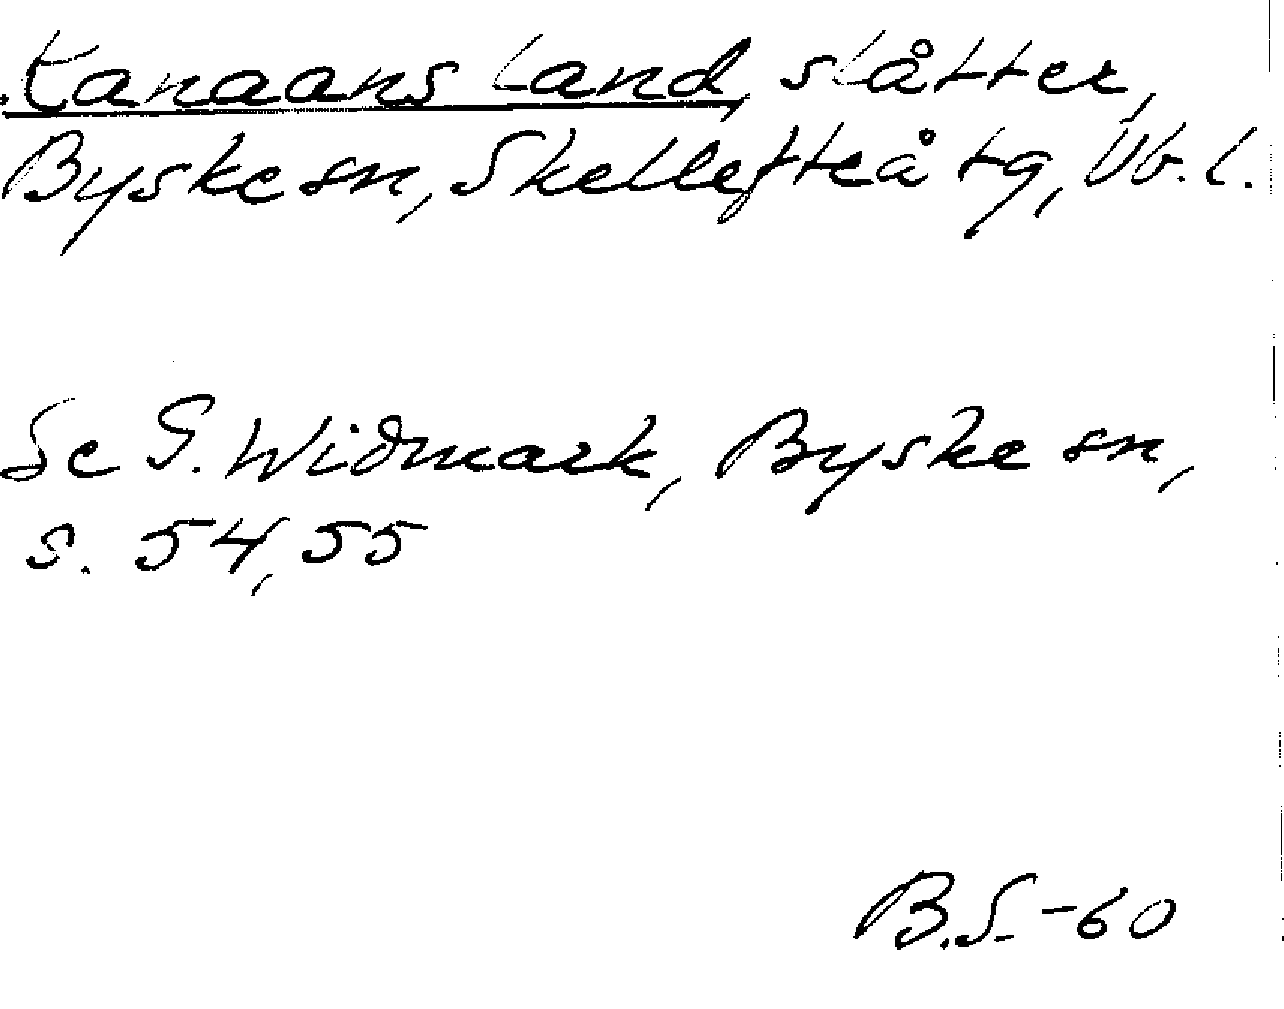 Kanaans land, slåtter,
Byske sn, Skellefteå tg, Vb. l.
Se G. Widmark, Byske sn,
s. 54, 55
B.S. -60